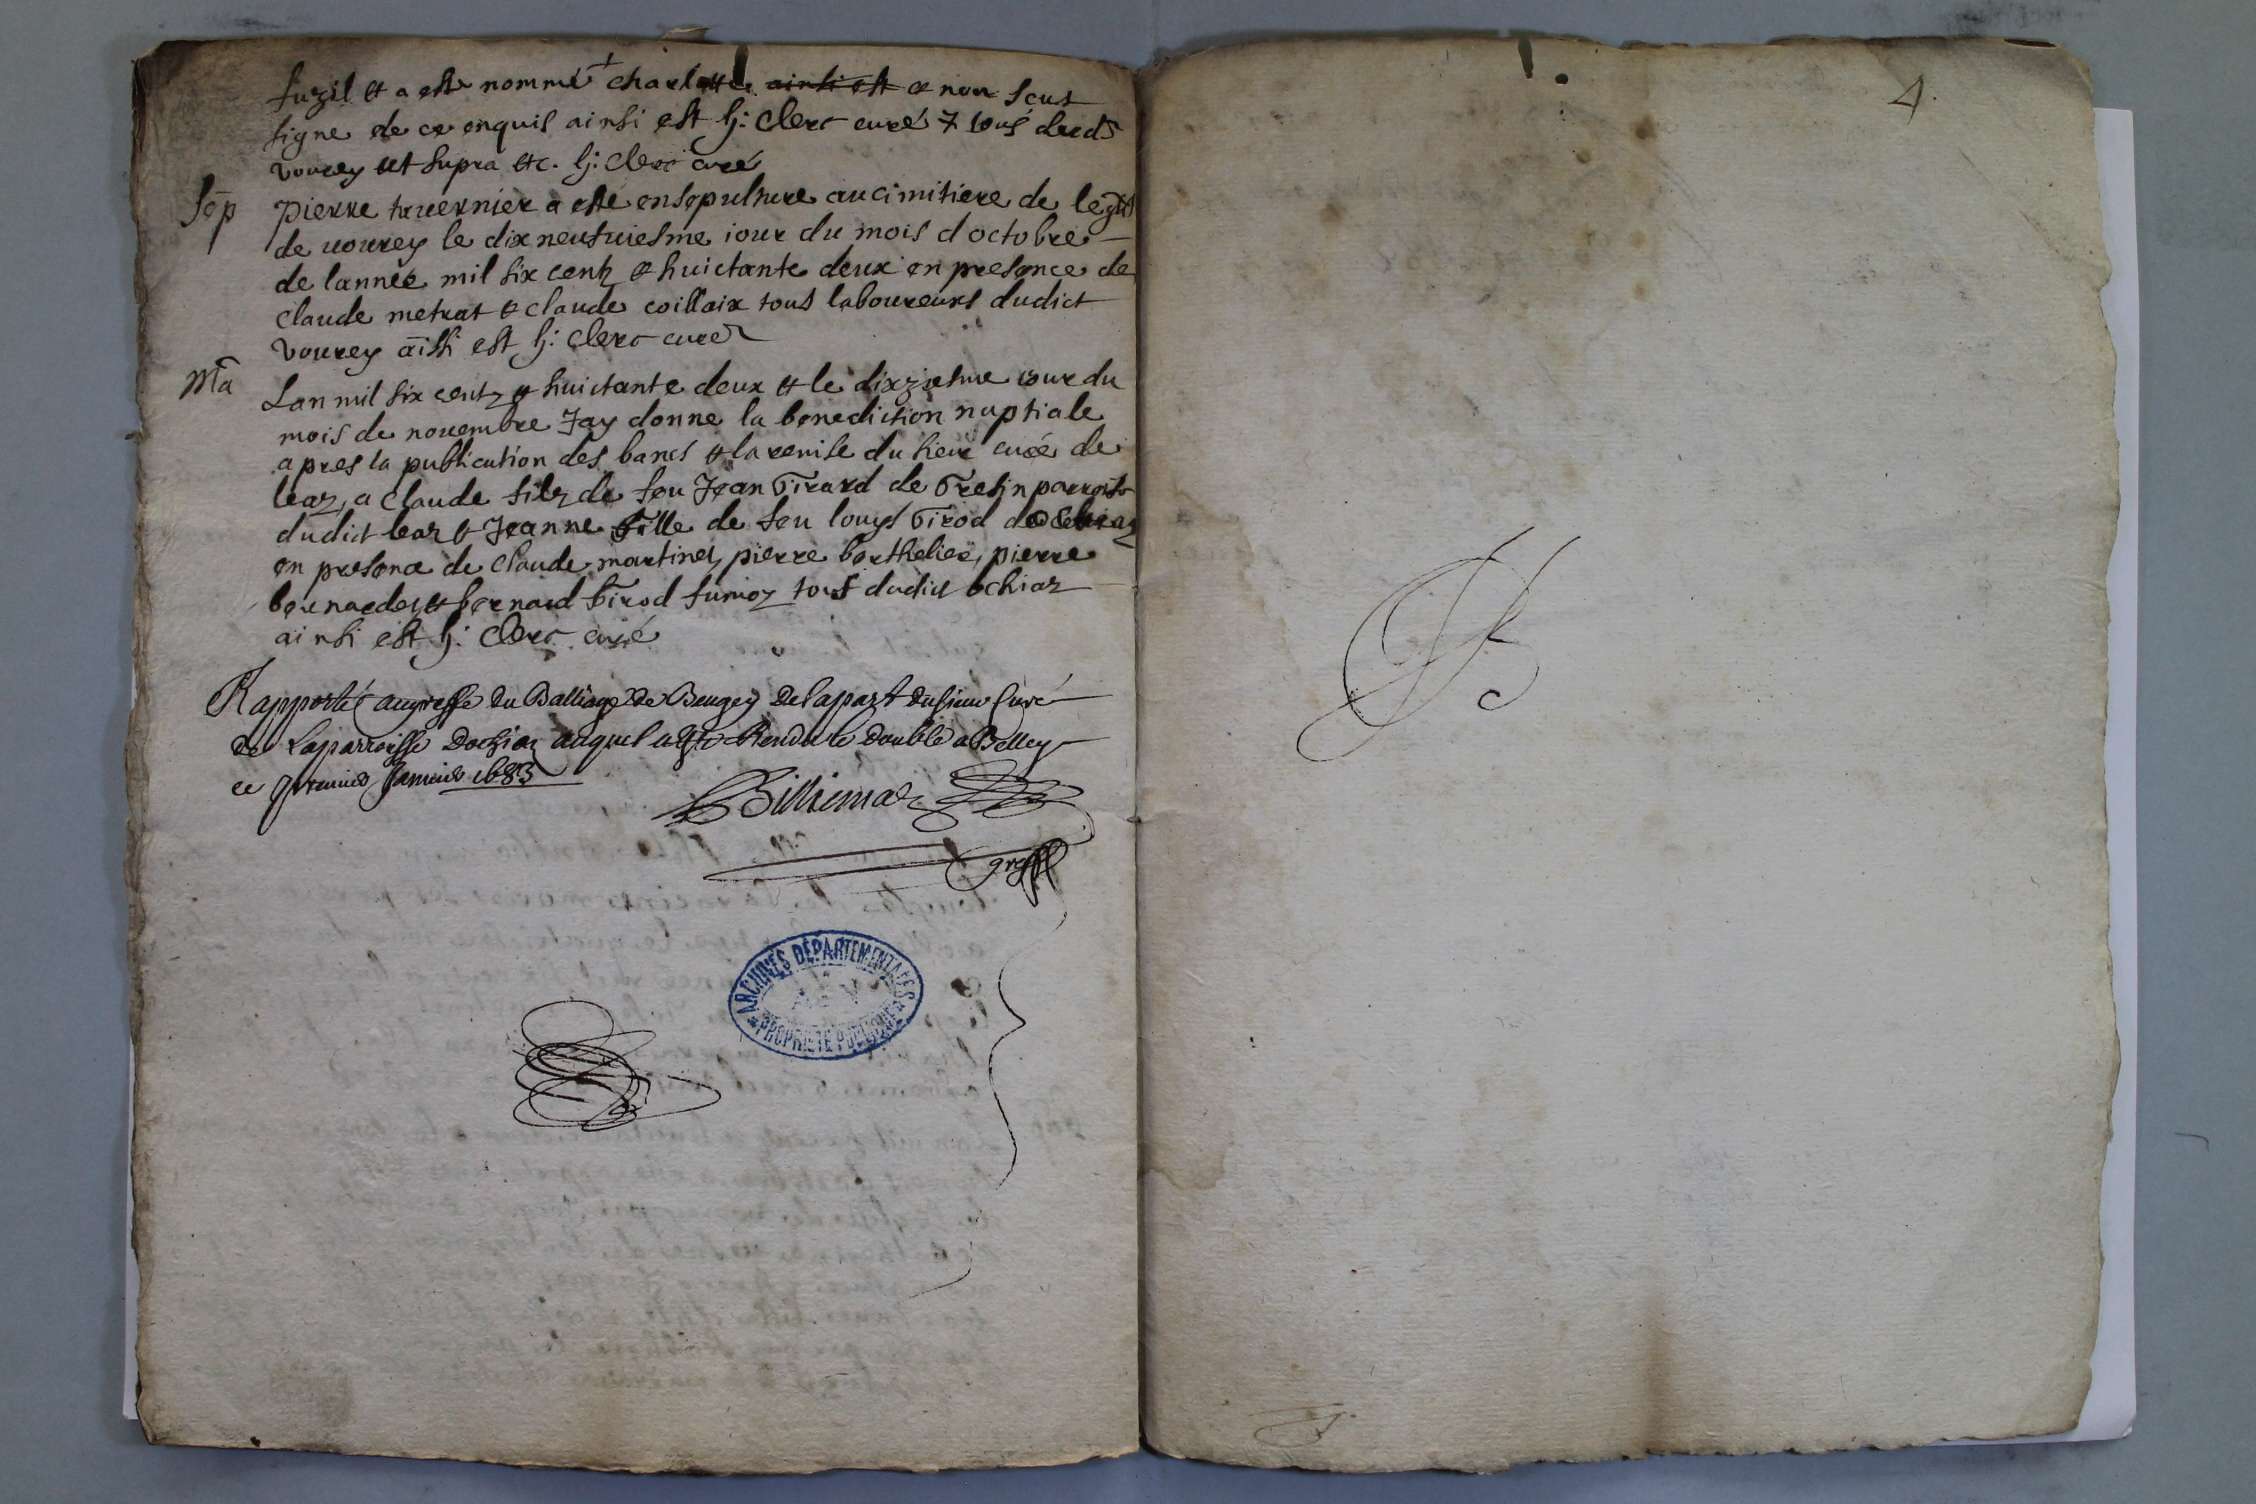 fuzil & a este nommé + charlotte ainsi est & non sceus
signe de ce enquis ainsi est h: Clerc curé 7 tous dud
vourey ut supra etc. h: Clerc curé
Sep
pierre tavernier a este ensepulture au cimitiere de
de uourey le dix neufuiesme iour du mois d octobre
de lannée mil six centz & huictante deux en presence de
Claude metrat & Claude coillaix tous laboureurs dudict
vourey aissi est h: Clerc curé
Ma
Lan mil six centz & huictante deux & le dixziesme iour du
mois de nouembre Jay donne la benediction nuptiale
apres la publication des bancs & la remise du sieur curé de
leaz, a Claude filz de feu Jean Girard de Gresin parroisse
dudict leaz & Jeanne fille de feu louys Girod de
en presence de Claude martinez, pierre berthelier, pierre
bernardez & bernard Girod fumoz tous dudict ochiaz
ainsi est h: Clerc curé
Rapporté au greffe du Balliage de Beugey de la part du sieur Curé
de La parroisse Dochiaz auquel a este Rendu le double a Belley
ce premier Janvier 1683
Billiemaz
greff
ARCHIVES DÉPARTEMENTALES
PROPRIÉTÉ PUBLIQUE
4.